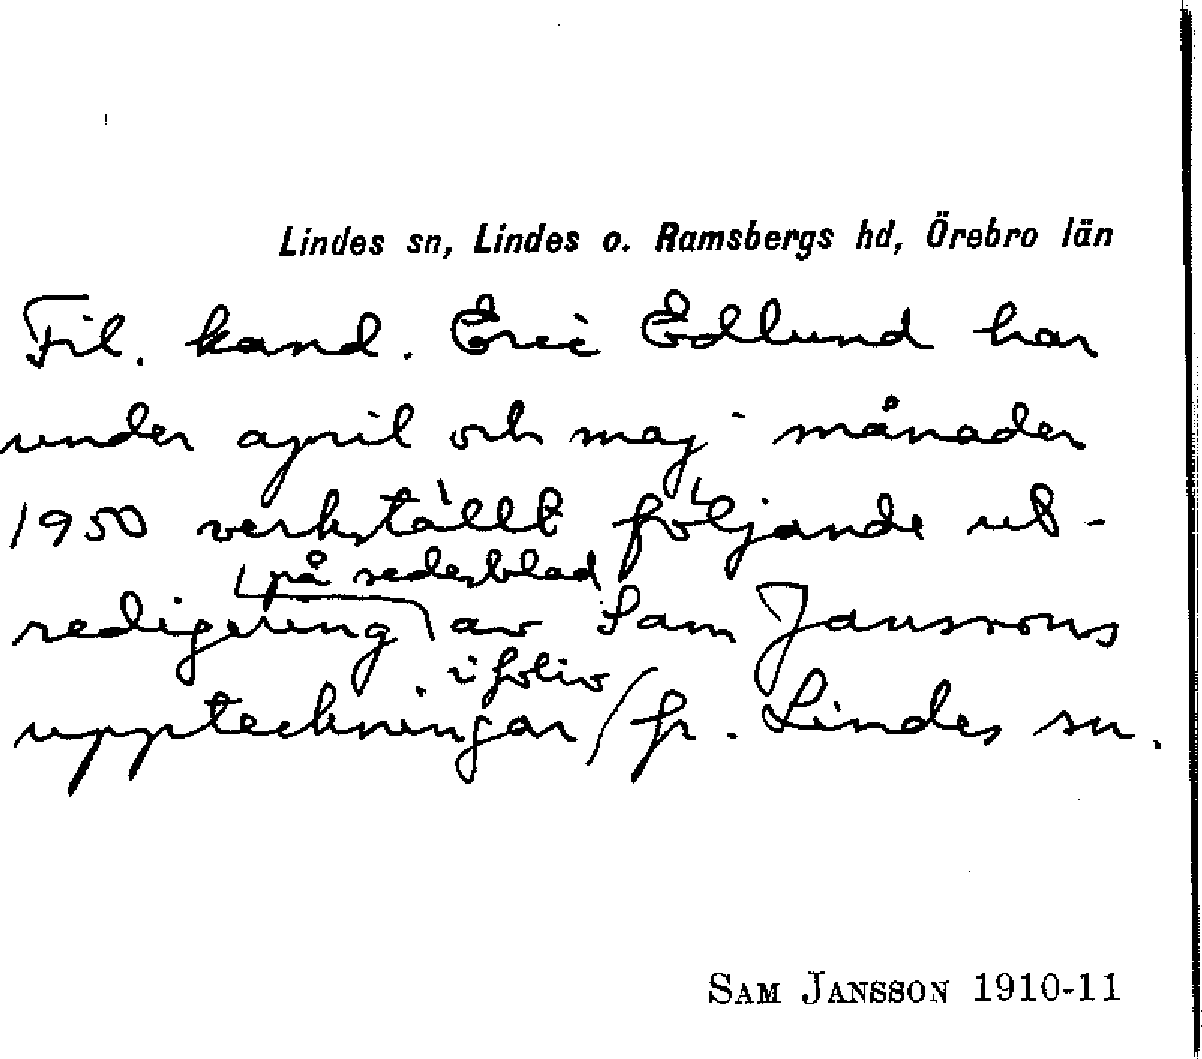 Lindes sn, Lindes o. Ramsbergs hd, Örebro län
Fil. kand. Eric Edlund har
under april och maj månader
1950 verkställt följande ut-
på sedesblad
redigering av Sam Janssons
i folio
uppteckningar fr. Lindes sn.
SAM JANSSON 1910-11